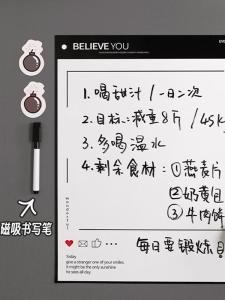 BELIEVE YOU
1.喝甜汁/一日二次
2.目标:减重8斤/45k
3.多喝温水
4.剩余食材:①燕麦片
②奶黄包
③牛肉饼
wonderful
每日要锻炼
磁吸书写笔
Today
give a stranger one of your smiles.
It might be the only sunshine
he sees all day.